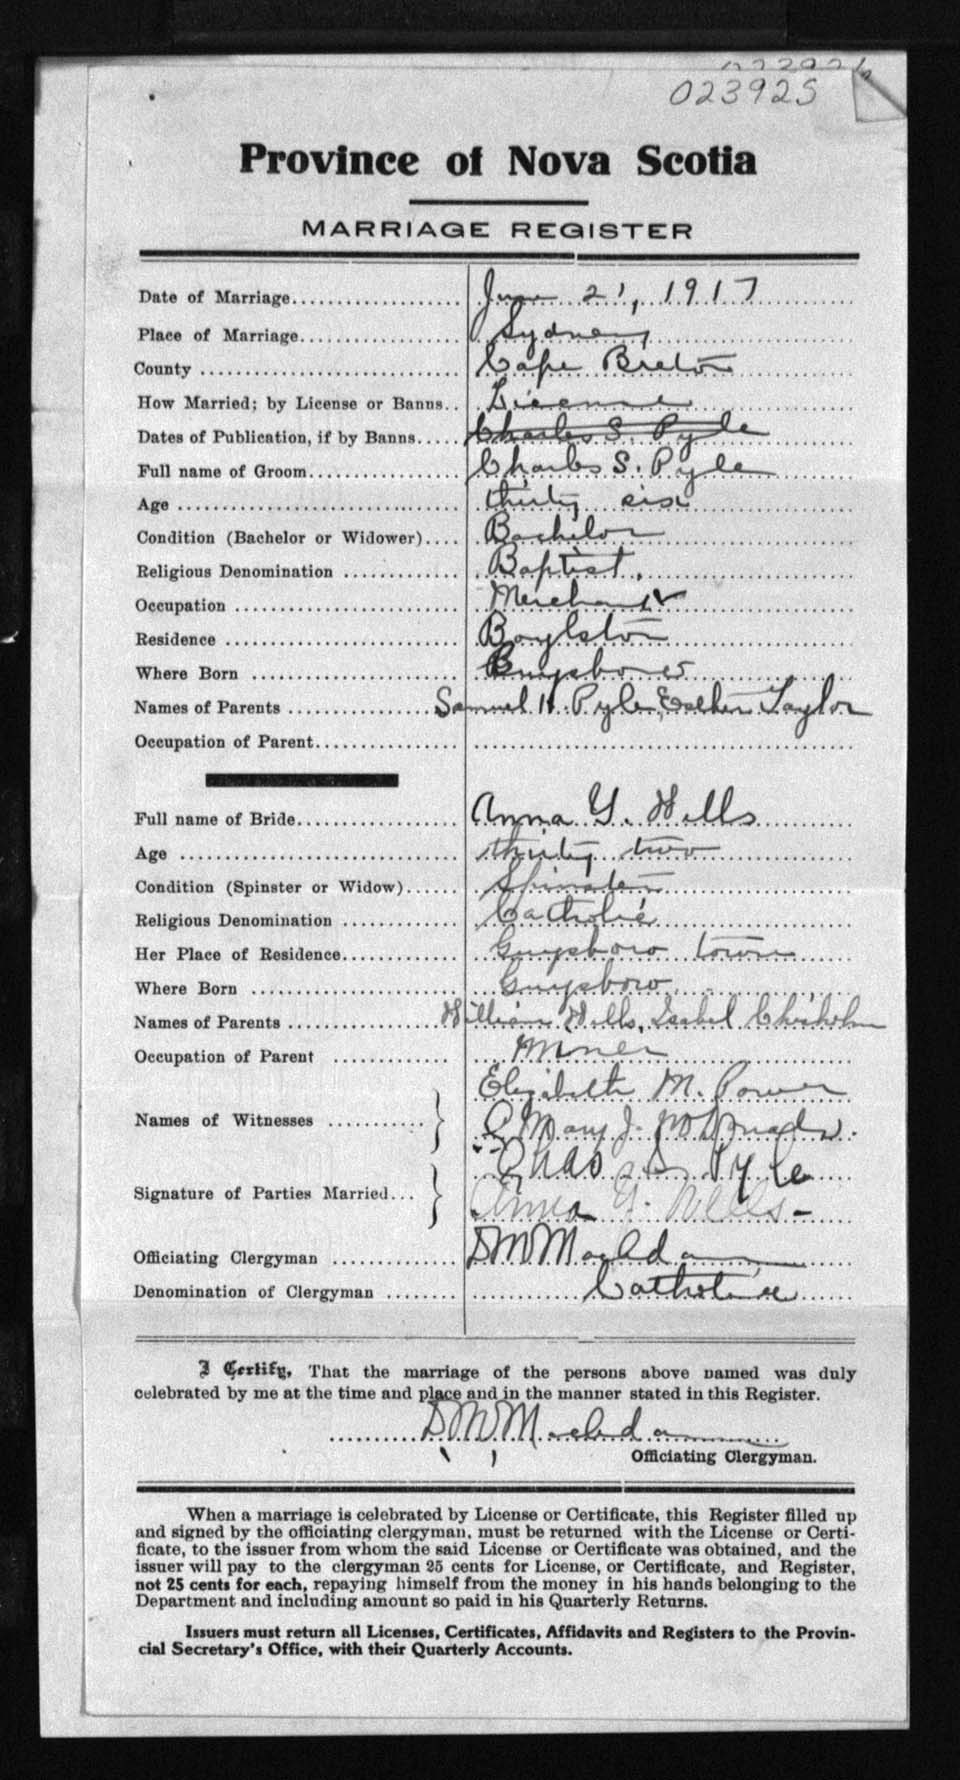 023925
Province of Nova Scotia
MARRIAGE REGISTER
Date of Marriage.................. June 21, 1917
Place of Marriage.................. Sydney
County .......................... Cape Breton
How Married; by License or Banns.. License
Dates of Publication, if by Banns..... Charles S. Pyle
Full name of Groom................ Charles S. Pyle
Age ............................ thirty six
Condition (Bachelor or Widower).... Bachelor
Religious Denomination ............. Baptist.
Occupation ....................... Merchant
Residence ........................ Boylston
Where Born ..................... Guysboro
Names of Parents ................ Samuel H. Pyle, Esther Taylor
Occupation of Parent................
Full name of Bride.................. Anna G. Wells
Age ............................ thirty two
Condition (Spinster or Widow)...... Spinster
Religious Denomination ............ Catholic
Her Place of Residence............. Guysboro town
Where Born ..................... Guysboro
Names of Parents ................ William Wells, Isabel Chisholm
Occupation of Parent ............. Miner
Elizabeth M. Power
Names of Witnesses ........... Mary J.
Chas S Pyle
Signature of Parties Married... Anna G. Wells
Officiating Clergyman ............. D M Macadam
Denomination of Clergyman ........ Catholic
I Certify, That the marriage of the persons above named was duly
celebrated by me at the time and place and in the manner stated in this Register.
D. M. Macadam
Officiating Clergyman.
When a marriage is celebrated by License or Certificate, this Register filled up
and signed by the officiating clergyman, must be returned with the License or Certi-
ficate, to the issuer from whom the said License or Certificate was obtained, and the
issuer will pay to the clergyman 25 cents for License, or Certificate, and Register,
not 25 cents for each, repaying himself from the money in his hands belonging to the
Department and including amount so paid in his Quarterly Returns.
Issuers must return all Licenses, Certificates, Affidavits and Registers to the Provin-
cial Secretary's Office, with their Quarterly Accounts.